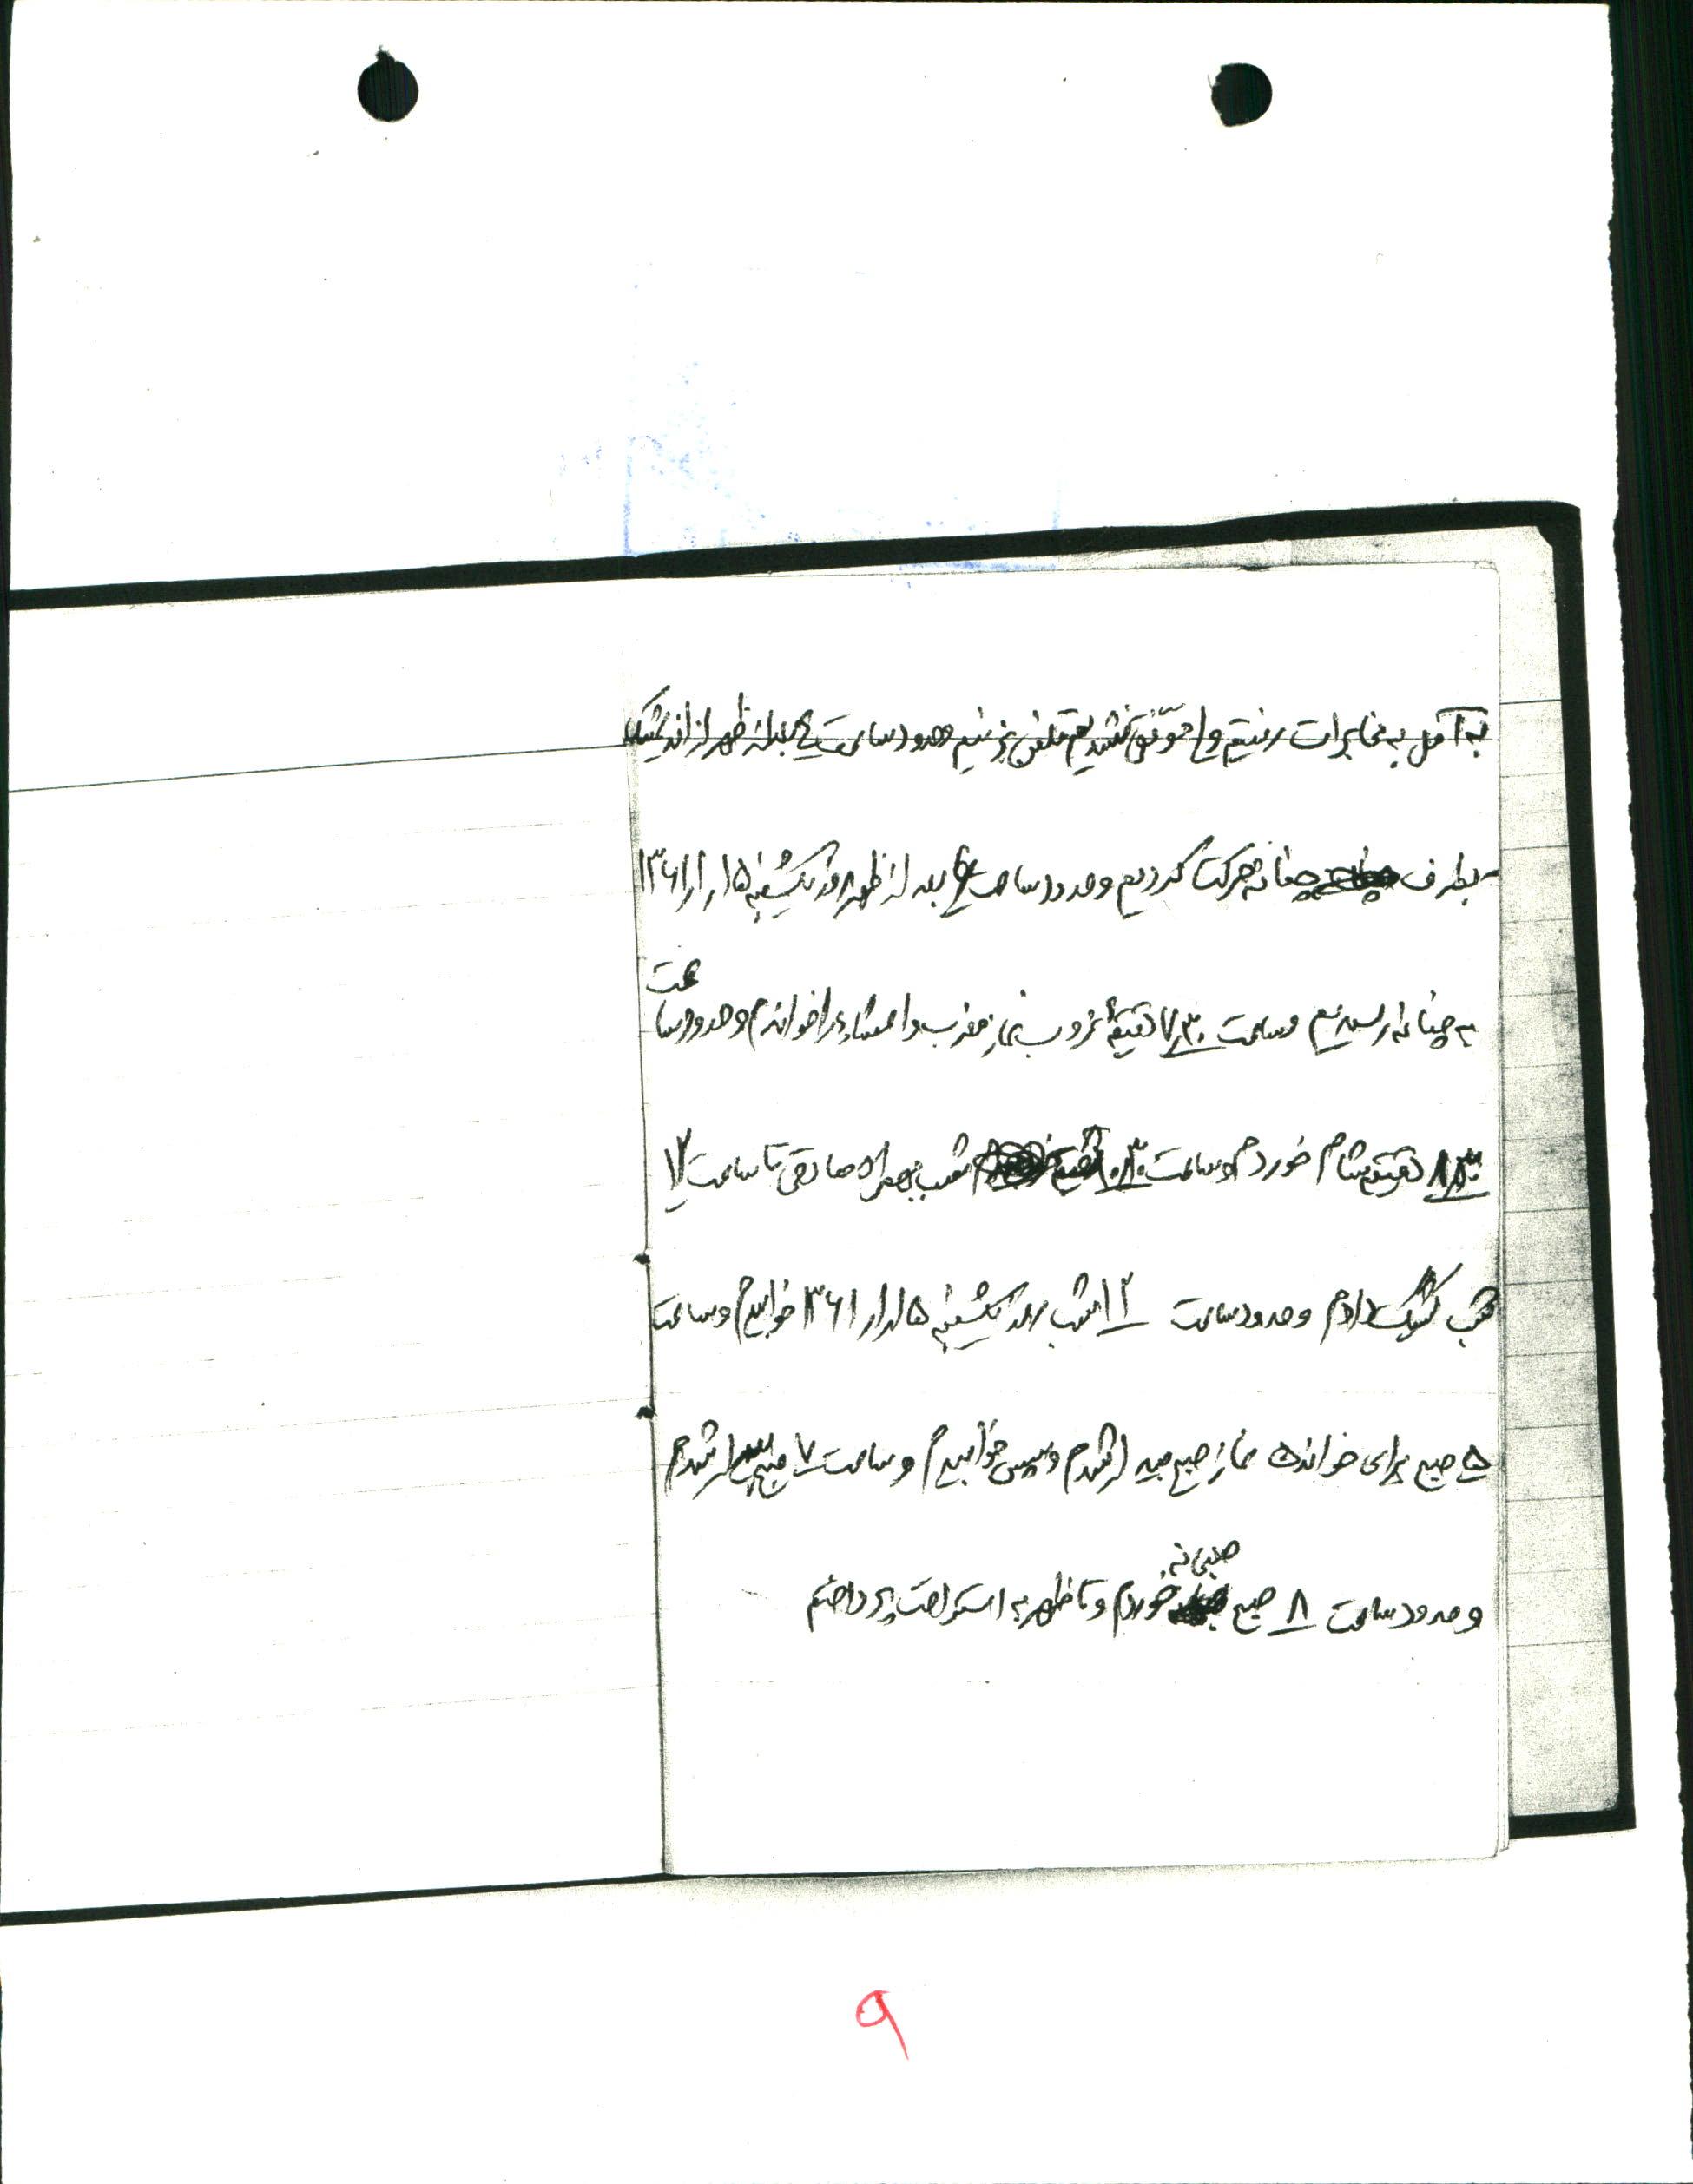 به آمل به مخابرات رفتیم ولی موفق نشدیم تلفن بزنیم وحدود ساعت ۴ بعداز ظهر از اندیشک
بطرف چنانه حرکت کردیم وحدود ساعت ۶ بعد از ظهر روز یکشنبه ۱۳۶۱/۱/۱۵
به چنانه رسیدیم وساعت ۷/۳۰ دقیقه غروب نماز مغرب وا عشاء را خواندم وحدود ساعت
۸/۳۰ دقیقه شام خوردم وساعت ۱۰/۳۰ شب بهمراه صادقی تا ساعت ۱۲
شب کشیک دادم وحدود ساعت ۱۲ شب روز یکشنبه ۱۳۶۱/۱/۱۵ خوابیدم وساعت
۵ صبح برای خواندن نماز صبح بیدار شدم وسپس خوابیدم وساعت ۷ صبح بیدار شدم
وحدود ساعت ۸ صبح صبحانه خوردم وتا ظهر به استراحت پرداختم
۹